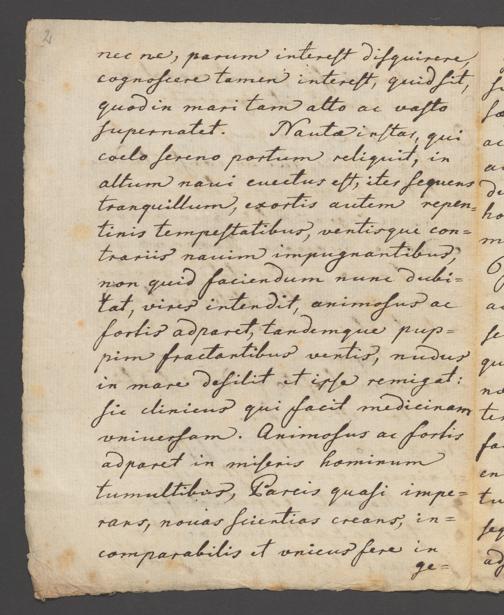 2
nec ne, parum interest disquirere,
cognoscere tamen interest, quid sit,
quod in mari tam alto ac vasto
supernatet. Nautæ instar, qui
coelo sereno portum reliquit, in
altum navi evectus est, iter sequens
tranquillum, exortis autem repen=
tinis tempestatibus, ventisque con=
trariis navim impugnantibus,
non quid faciendum nunc dubi=
tat, vires intendit, animosus ac
fortis adparet, tandemque pup=
pim fractantibus ventis, nudus
in mare desilit et ipse remigat:
sic clinicus qui facit medicinam
vniuersam. Animosus ac fortis
adparet in miseris hominum
tumultibus, Parcis quasi impe=
rans, nouas scientias creans, in=
comparabilis et vnicus fere in
ge=